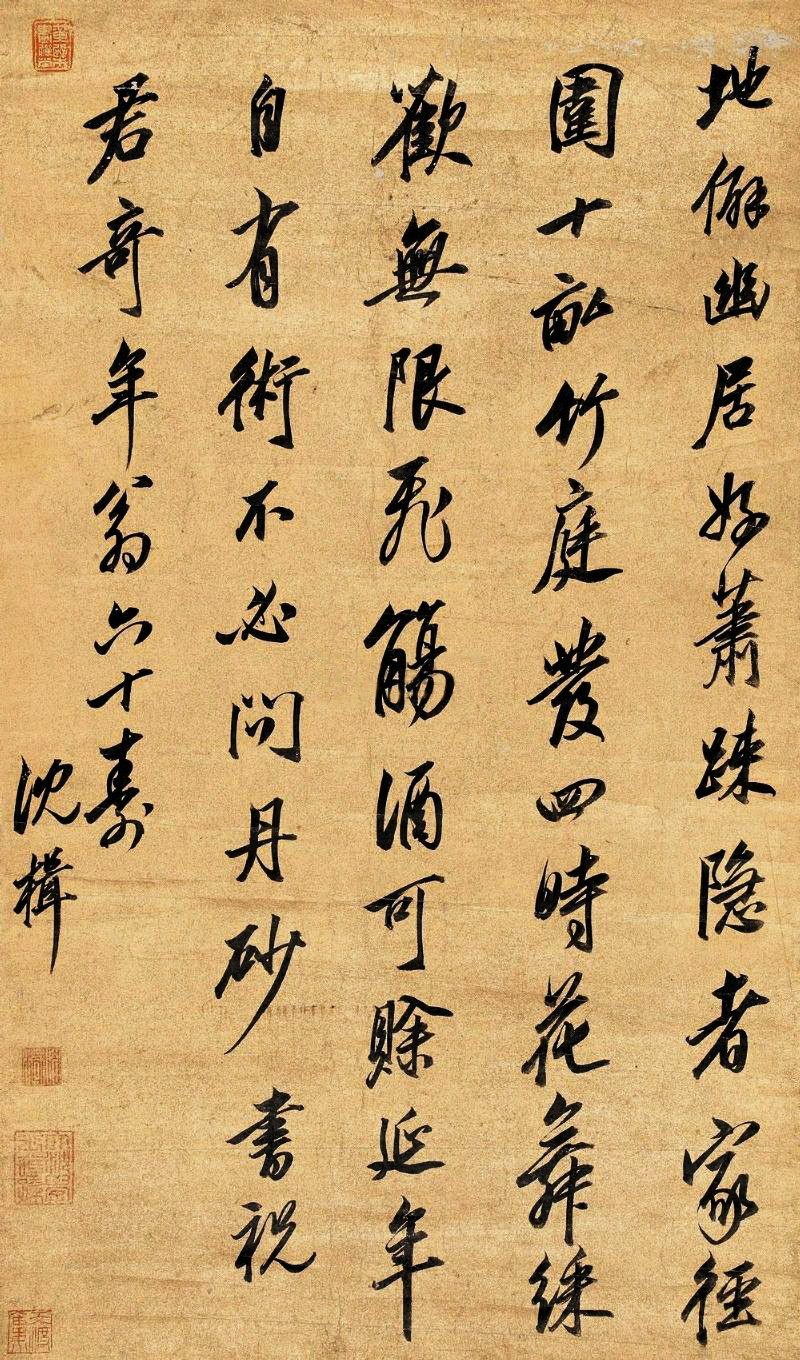 地僻幽居好蕭踈隐者家徑
圍十畝竹庭發四時花舞綵
歡無限飛觴酒可賒延年
自有術不必問丹砂 書祝
君奇年翁六十壽
沈楫